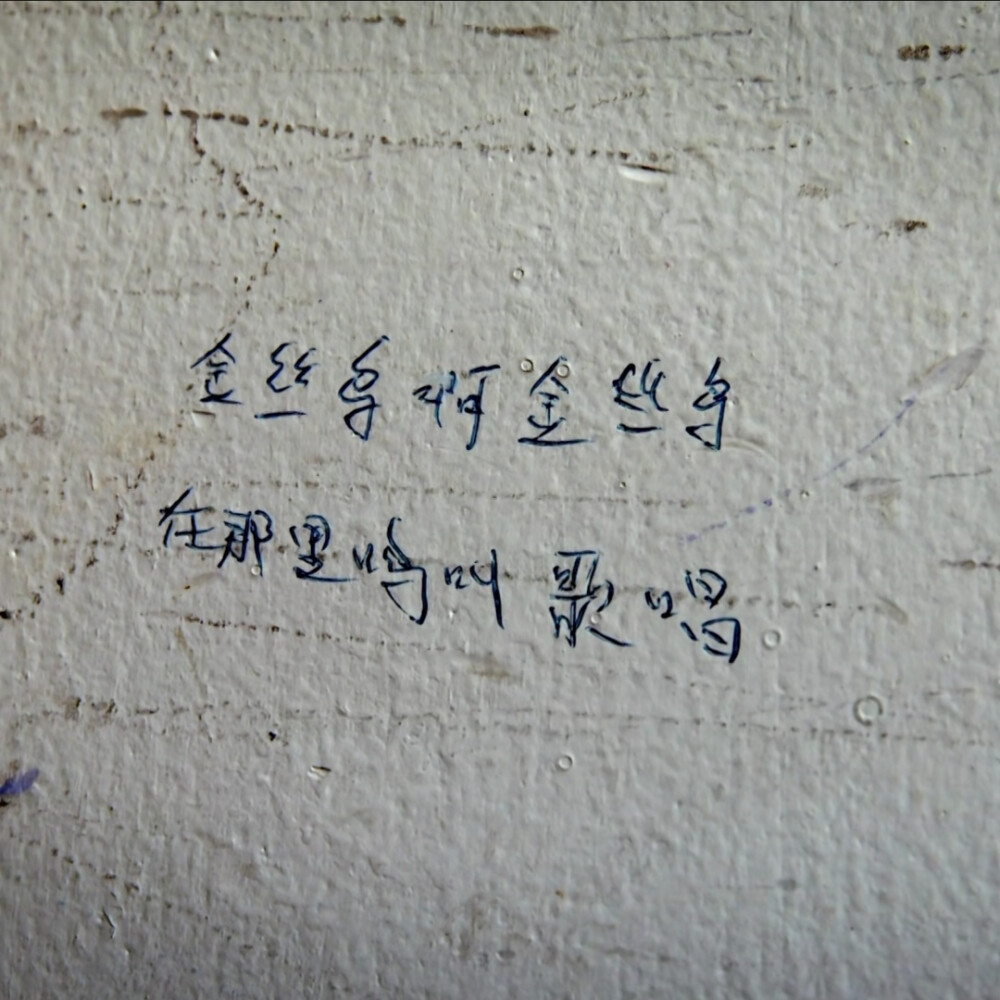 金丝鸟啊金丝鸟
在那里鸣叫歌唱